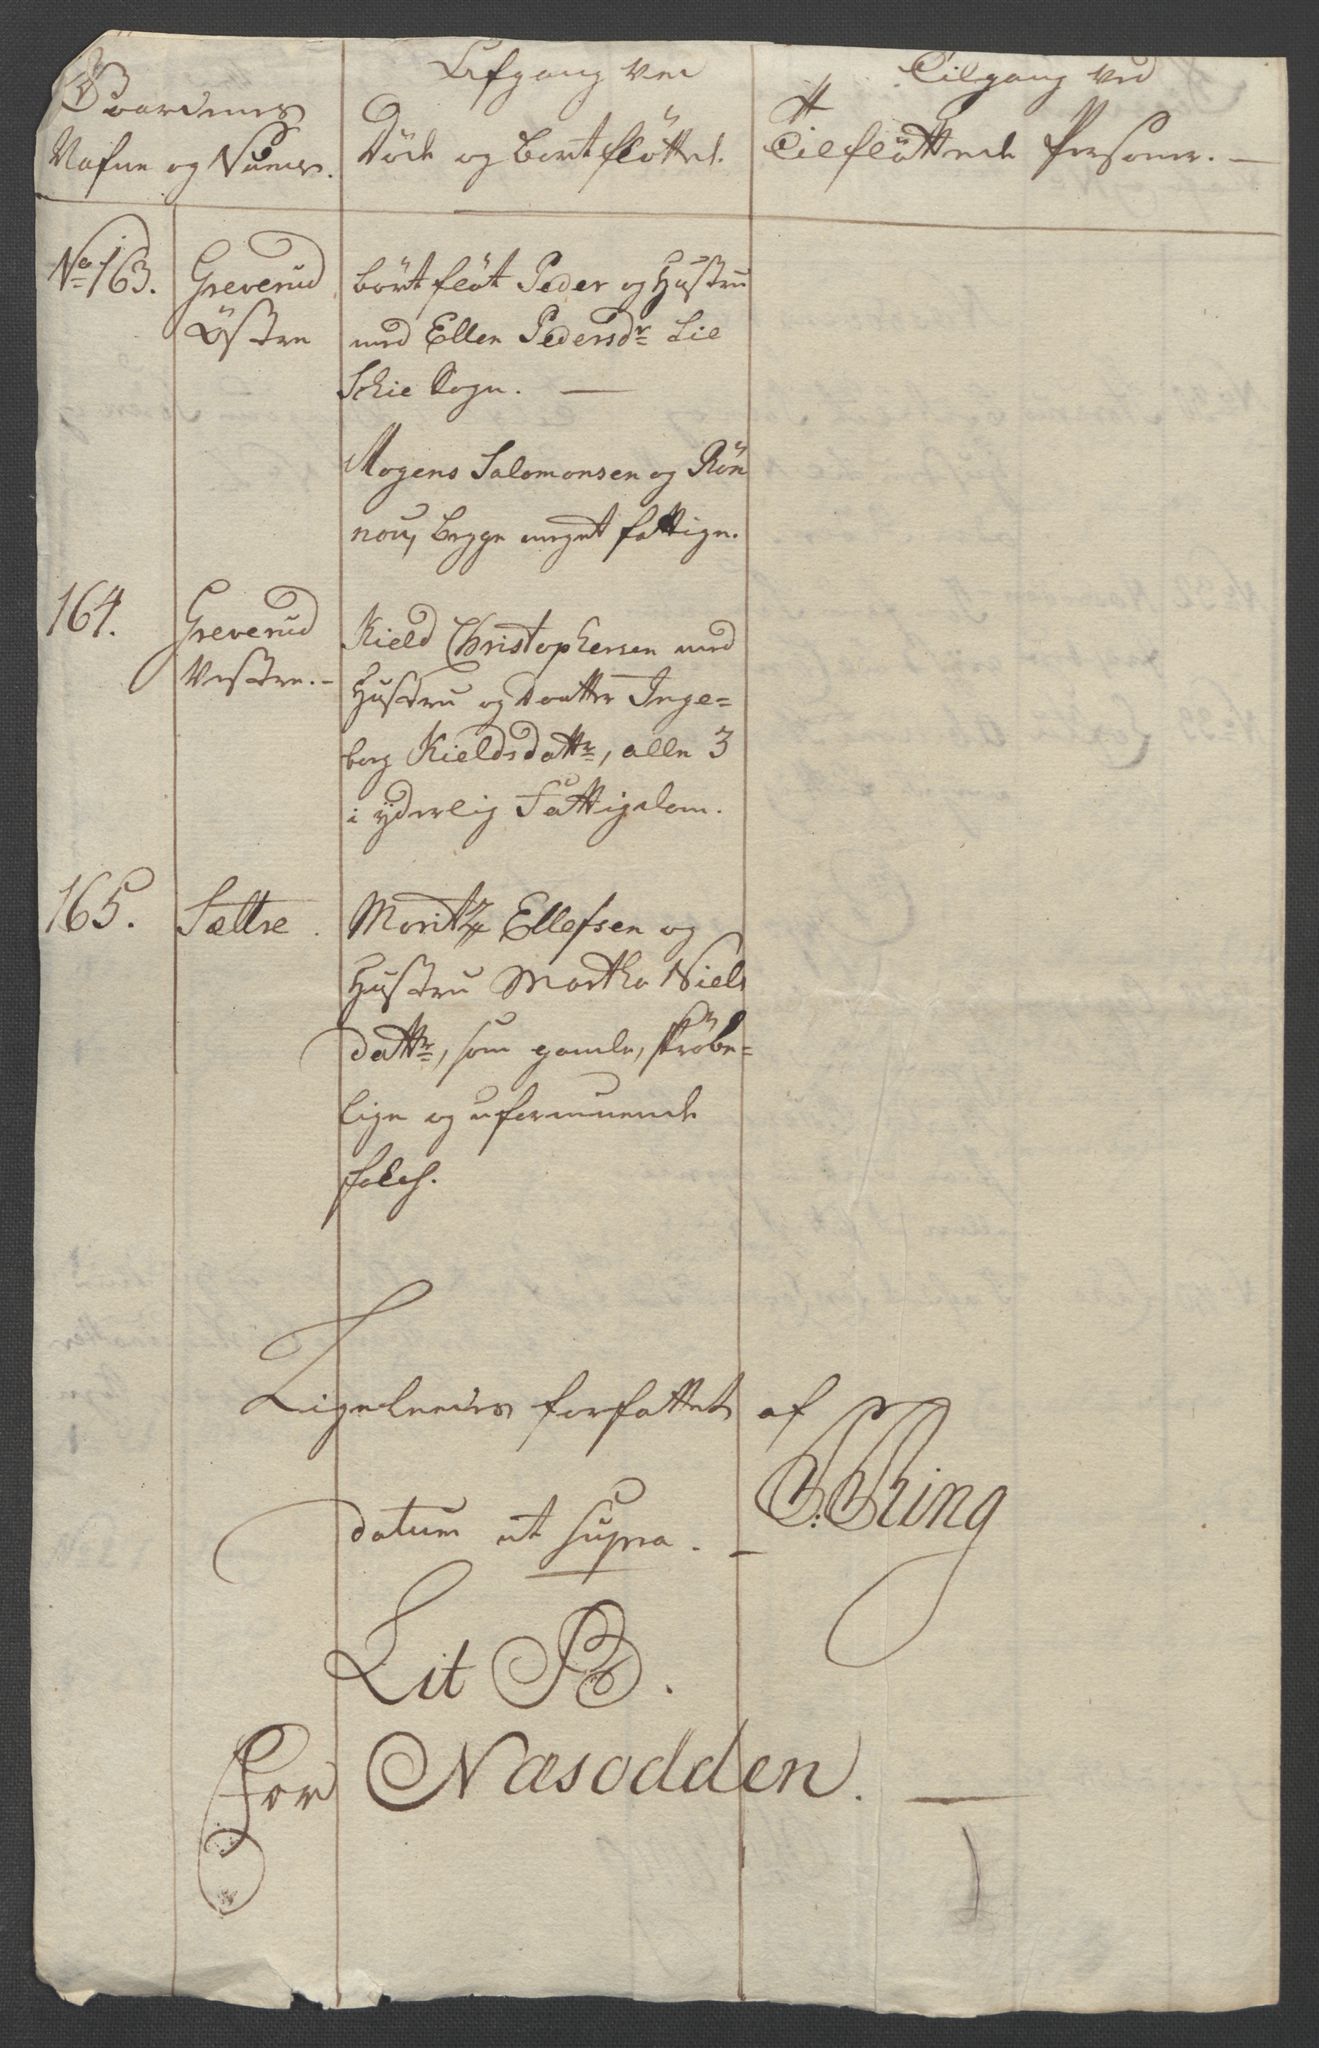 Gaardenes
Nafne og Numr.
Afgang ved
Døde og bortfløttet.
Tilgang ved
Tilfløttede Personer. —
No 163.
Greverud
Östre
bortfløt Peder og Hustru
med Ellen Pedersdr Lie
Schie Sogn. —
Mogens Salomonsen og Rön
nou, begge meget fattige.
164.
Greverud
Vestre. –
Kield Christophersen med
Hustru og Daatter Inge=
borg Kieldsdattr, alle 3
i yderlig Fattigdom.
165.
Sættre.
Moritz Ellefsen og
Hustru Martha Niels
dattr, som gamle, skrøbe=
lige og uformuende
folch.
Ligeleedes forfattet af
datum ut supra. –
Ring
Lit B.
For Næsodden. —